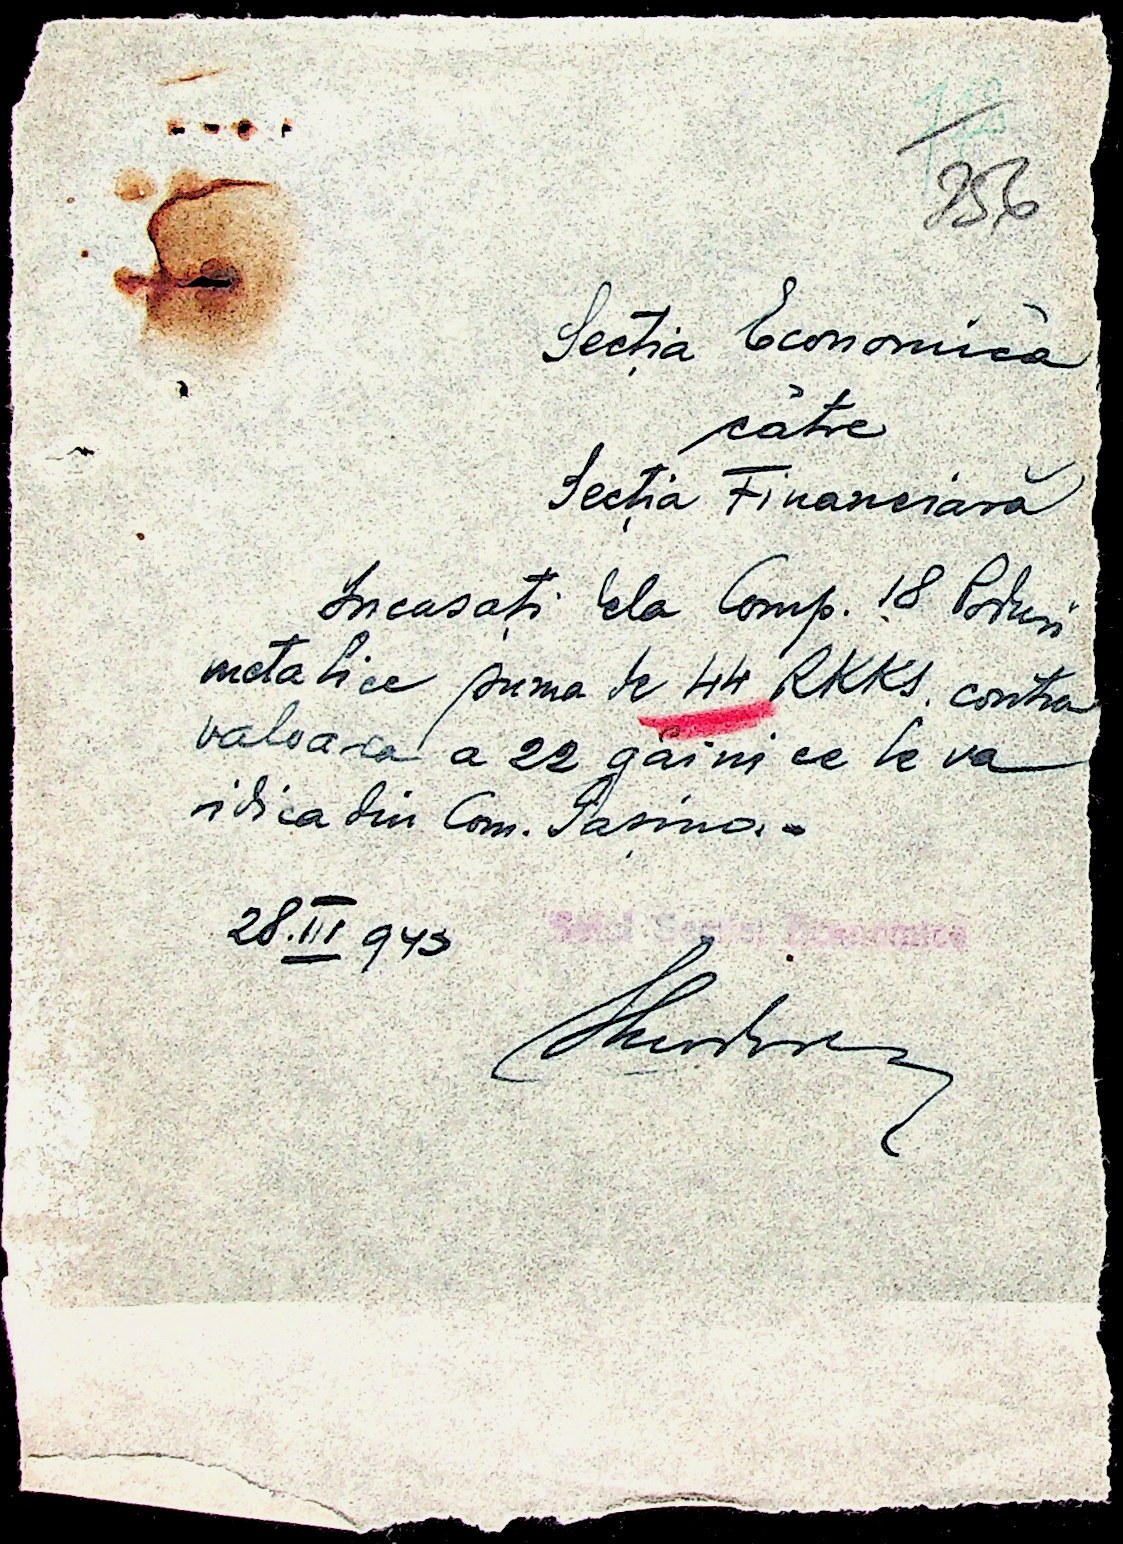 256
Secția Economică
către
Secția Financiară
Incasați dela Comp. 18 Poduri
metalice suma de 44 RKKS. contra
valoarea a 22 găini ce le va
ridica din Com.
28.III 943
Șeful Secției Economice